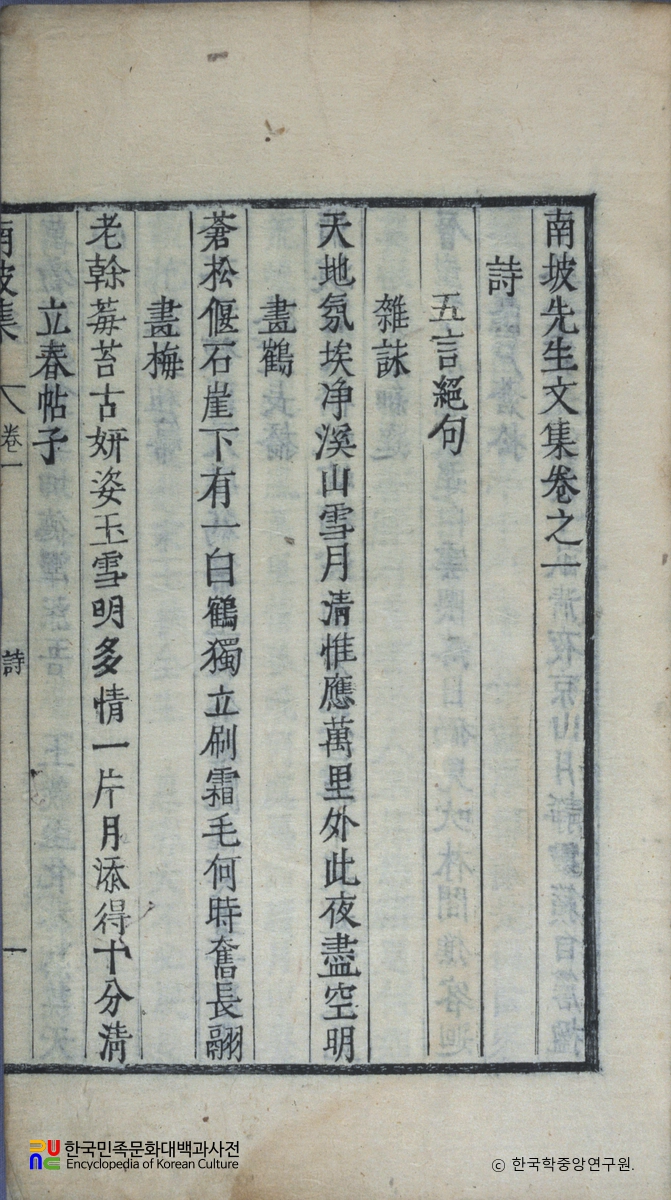 南坡先生文集卷之一
詩
五言絕句
雜詠
天地氛埃净溪山雪月清惟應萬里外此夜盡空明
畫鶴
蒼松偃石崖下有一白鶴獨立刷霜毛何時奮長翮
畫梅
老幹莓苔古妍姿玉雪明多情一片月添得十分淸
立春帖子
南坡集 卷一 詩 一
한국민족문화대백과사전
Encyclopedia of Korean Culture
ⓒ 한국학중앙연구원.